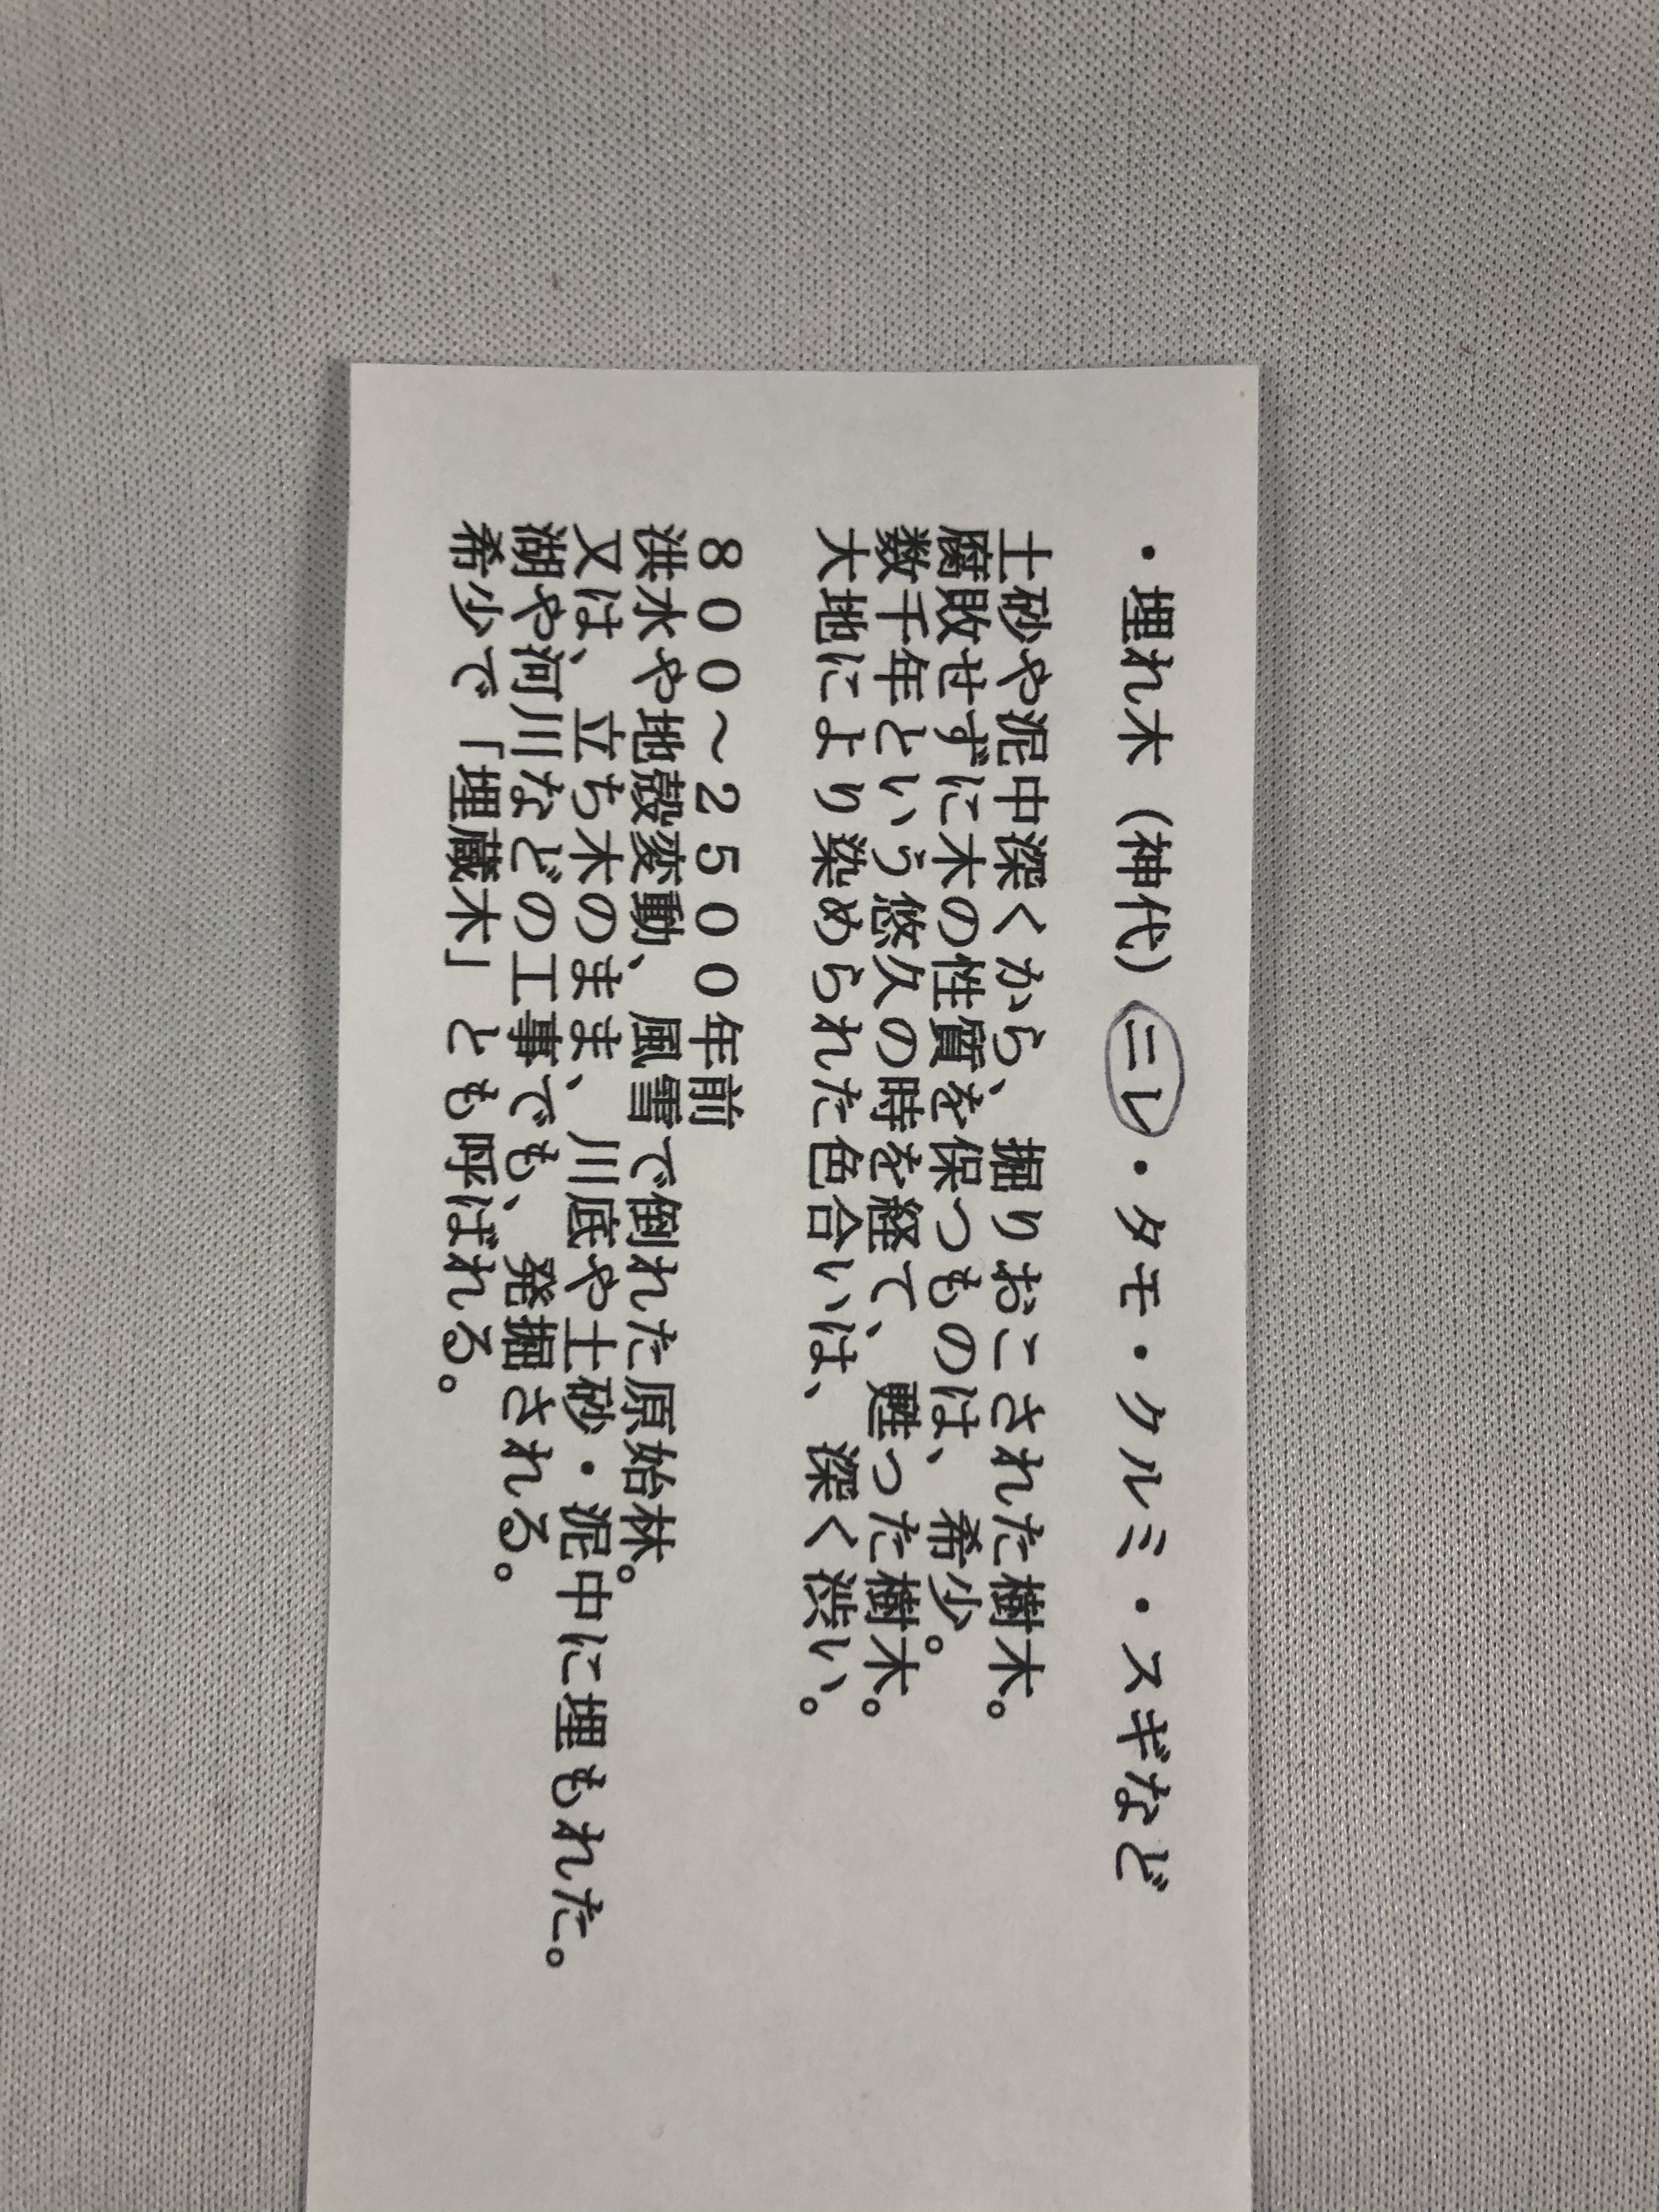 ・埋れ木（神代）ニレ・タモ・クルミ・スギなど
土砂や泥中深くから、掘りおこされた樹木。
腐敗せずに木の性質を保つものは、希少。
数千年という悠久の時を経て、甦った樹木。
大地により染められた色合いは、深く渋い。
８００～２５００年前
洪水や地殻変動、風雪で倒れた原始林。
又は、立ち木のまま、川底や土砂・泥中に埋もれた。
湖や河川などの工事でも、発掘される。
希少で「埋蔵木」とも呼ばれる。